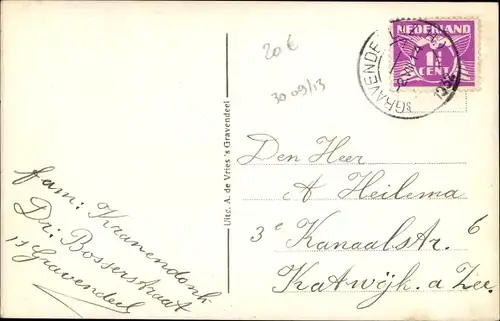 20 €
30 09/13
NEDERLAND
1½
CENT
'SGRAVENDEEL
1935
Uitg. A. de Vries 's Gravendeel
fam: Kranendonk
Dr. Bosserstraat
's Gravendeel
Den Heer
A Heilema
3e Kanaalstr. 6
Katwijk. a Zee.